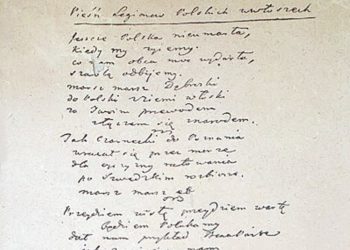 Pieśń Legionów Polskich we Włoszech
Jeszcze Polska nieumarła,
kiedy my żyjemy.
co nam obca moc wydarła,
szablą odbijemy.
marsz marsz Dąbrski
do Polski z ziemi włoski
za Twoim przewodem
złączem się znarodem.
Jak Czarnecki do Poznania
wracał się przez morze
dla ojczyzny ratowania
po Szwedzkim rozbiorze.
marsz marsz etc
Przejdziem Wisłę przejdziem Wartę
będziem Polakamy
dał nam przykład Bonaparte
jak mamy